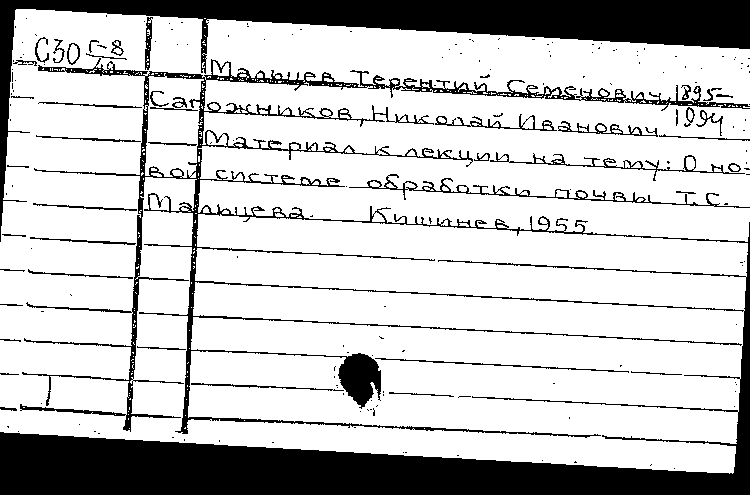 С30 Г-8/49
Мальцев, Терентий Семенович, 1895-1994
Сапожников, Николай Иванович.
Материал к лекции на тему: О но-
вой системе обработки почвы Т.С.
Мальцева. Кишинев, 1955.